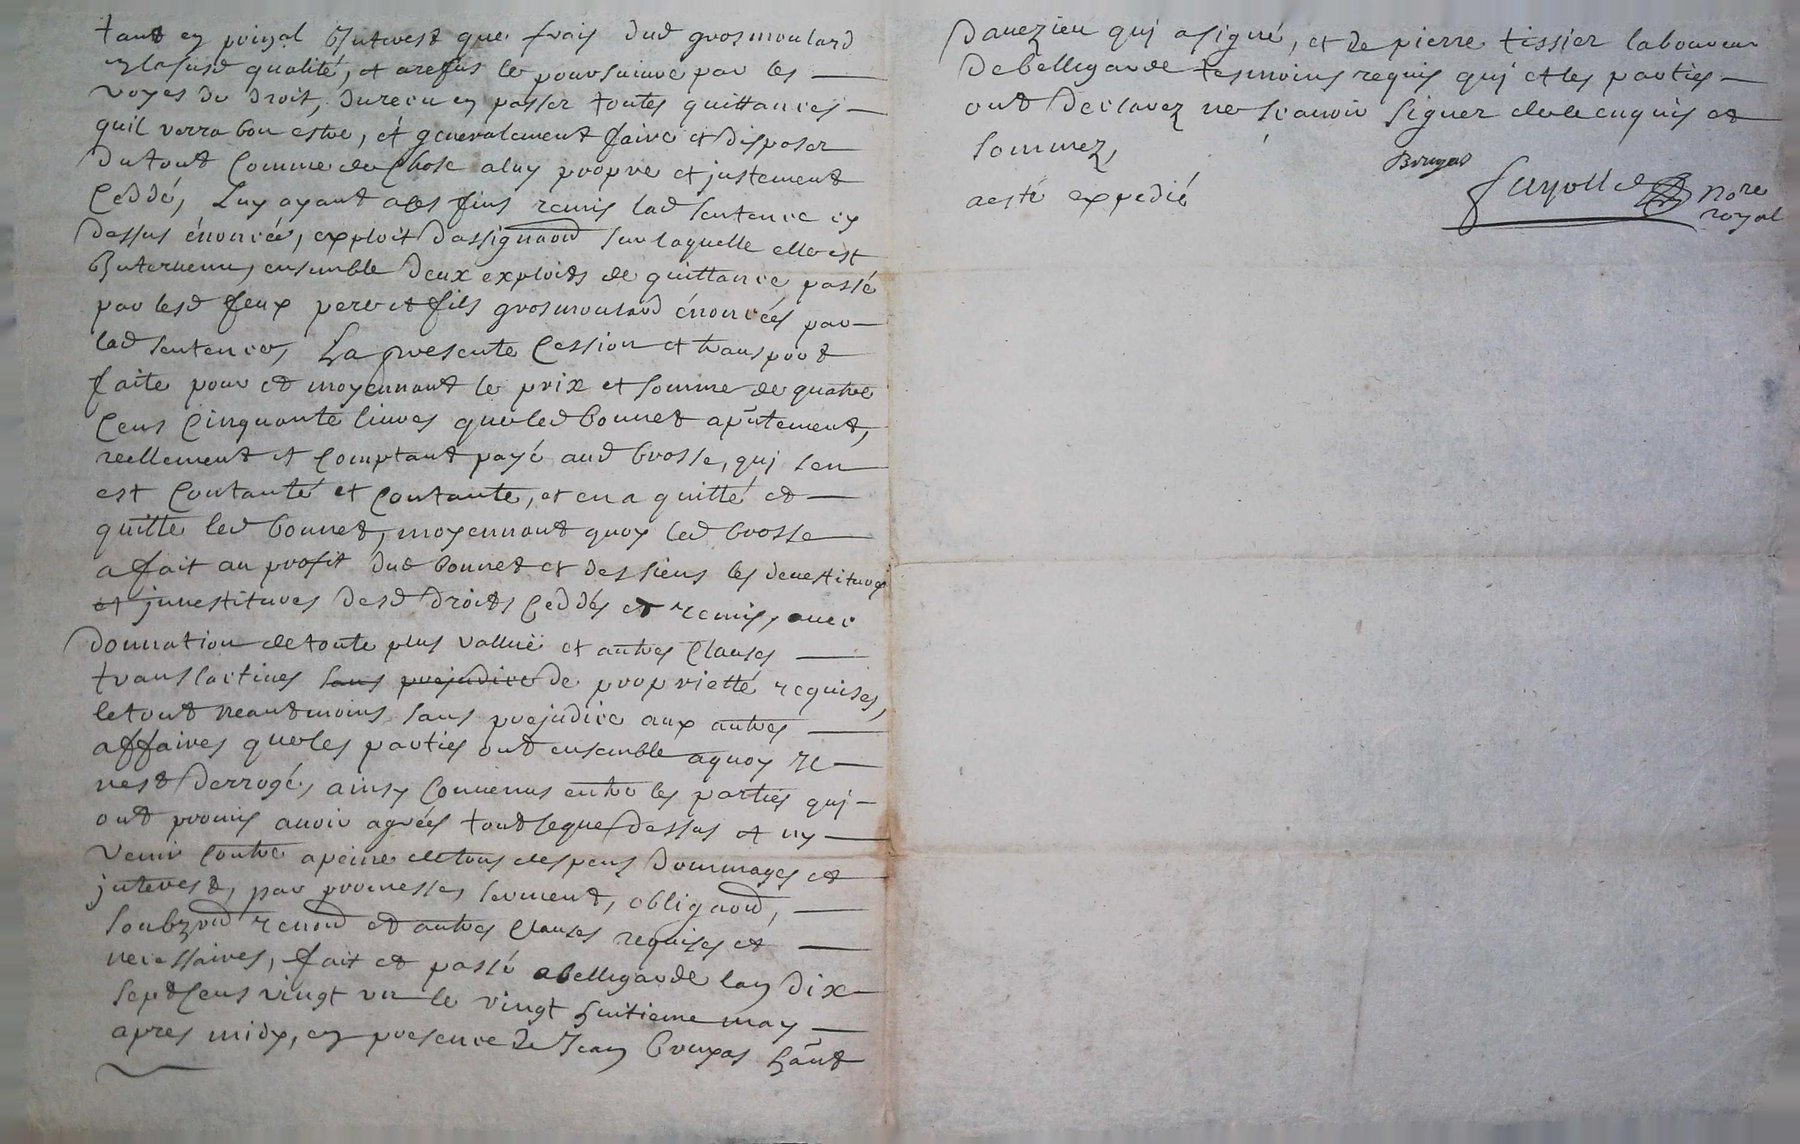 tant en prinzal Interest que frais dud grosmoulard
en lasusd qualité, et arefus le poursuivre par les
voyes de droit, dureceu en passer toutes quittances
quil verra bon estre, et generalement faire et disposer
du tout Comme de Chose aluy propre et justement
Ceddé, Luy ayant a ces fins remis lad sentence cy
dessus énoncée, exploit dassignaon sur laquelle elle est
Intervenue, ensemble deux exploits de quittance passé
par lesd feux pere et fils grosmoulard énoncées par
lad sentence, La presente Cession et transport
faite pour et moyennant le prix et somme de quatre
Cens Cinquante livres que led bonnet apntement,
reellement et Comptant payé aud brosse, qui sen
est Contanté et Contante, et en a quitté et
quitte led bonnet, moyennant quoy led brosse
a fait au profit dud bonnet et des siens les devestitures
et jnvestitures desd droits Ceddés et remis, avec
donnation de toute plus valluë et autres Clauses
translactives sans prejudice de proprietté requises,
le tout neantmoins sans prejudice aux autres
affaires que les parties ont ensemble a quoy Il
nest derrogé, ainsy Convenus entre les parties qui
ont promis avoir agréés tout ceque dessus et ny
venir Contre a peine de tous despens dommages et
jnterest, par promesse, serment, obligaon,
soubzon renon et autres Clauses requises et
necessaires, fait et passé a bellegarde lan dix
sept Cens vingt un le vingt huitieme may
apres midy, en presence de Jean bruyas hant
davezieu qui a signé, et de pierre tissier laboureur
de bellegarde tesmoins requis qui et les parties
ont declarez ne scavoir signer de ce enquis et
sommez,
Bruyas
aesté expedié
fayolle Nore
royal